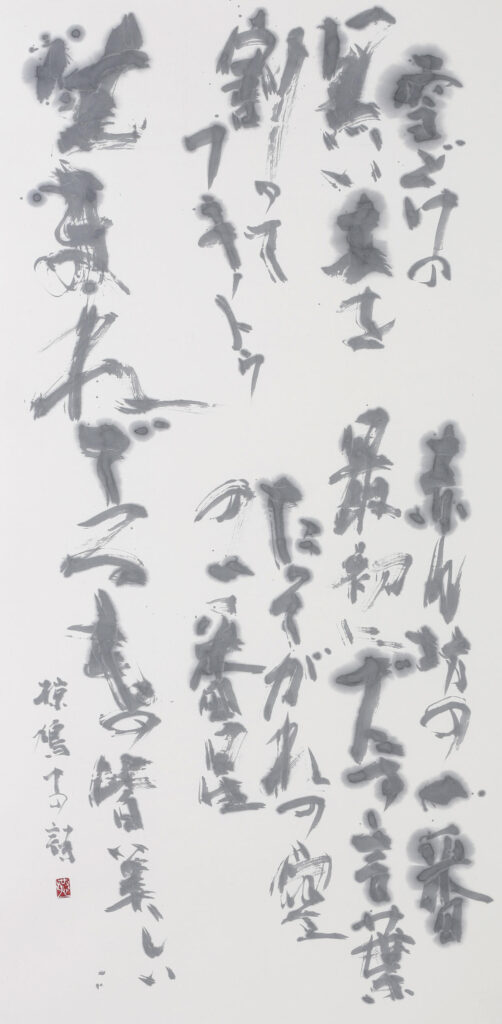 雪どけの
い土を
割って
フキノトウ
赤ん坊の一番
最初に言葉
たそがれの空
の一番星
生まれでるもの皆美しい
椋鳩十の詩